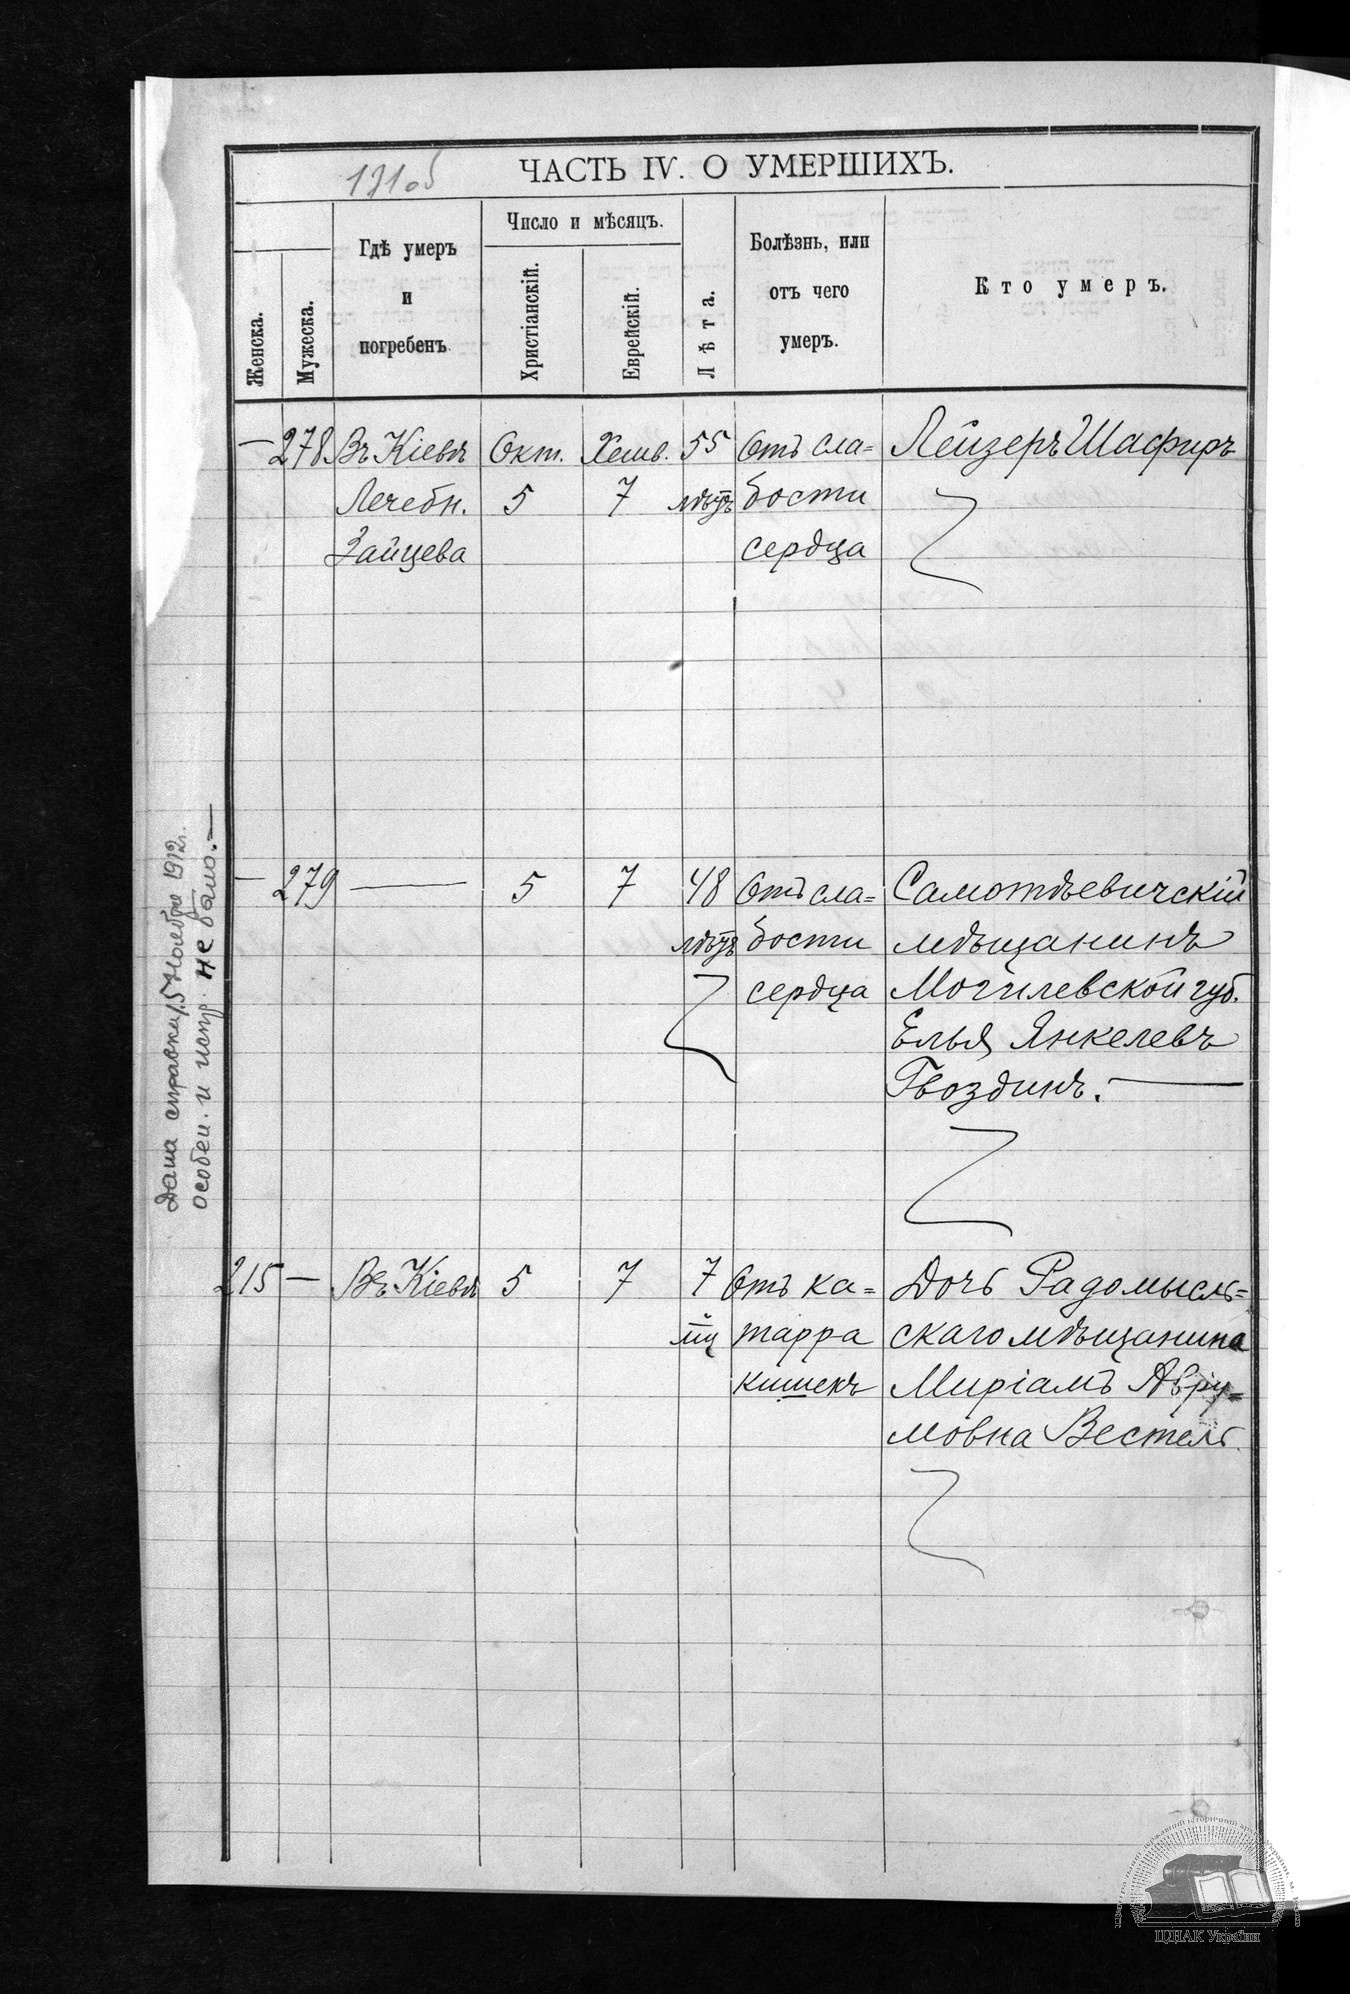 131об
ЧАСТЬ IV. О УМЕРШИХЪ.
Женска.
Мужеска.
Гдѣ умеръ
и
погребенъ
Число и мѣсяцъ.
Христіанскій.
Еврейскій.
Лѣта.
Болѣзнь, или
отъ чего
умеръ.
Кто умеръ.
— 278 Въ Кіевѣ Окт. Хешв. 55 Отъ сла= Лейзеръ Шафиръ
Лечебн. 5 7 лѣтъ бости
Зайцева сердца
— 279 — 5 7 48 Отъ сла= Самотѣевичскій
лѣтъ бости мѣщанинъ
сердца Могилевской губ.
Елья Янкелевъ
Гвоздинъ. —
215 — Въ Кіевѣ 5 7 7 Отъ ка= Дочь Радомысль=
мц тарра скаго мѣщанина
кишекъ Миріамъ Авру=
мовна Вестель.
Дана справка, 5 Ноября 1912 г.
особен. и испр. не было. —
ЦДІАК України